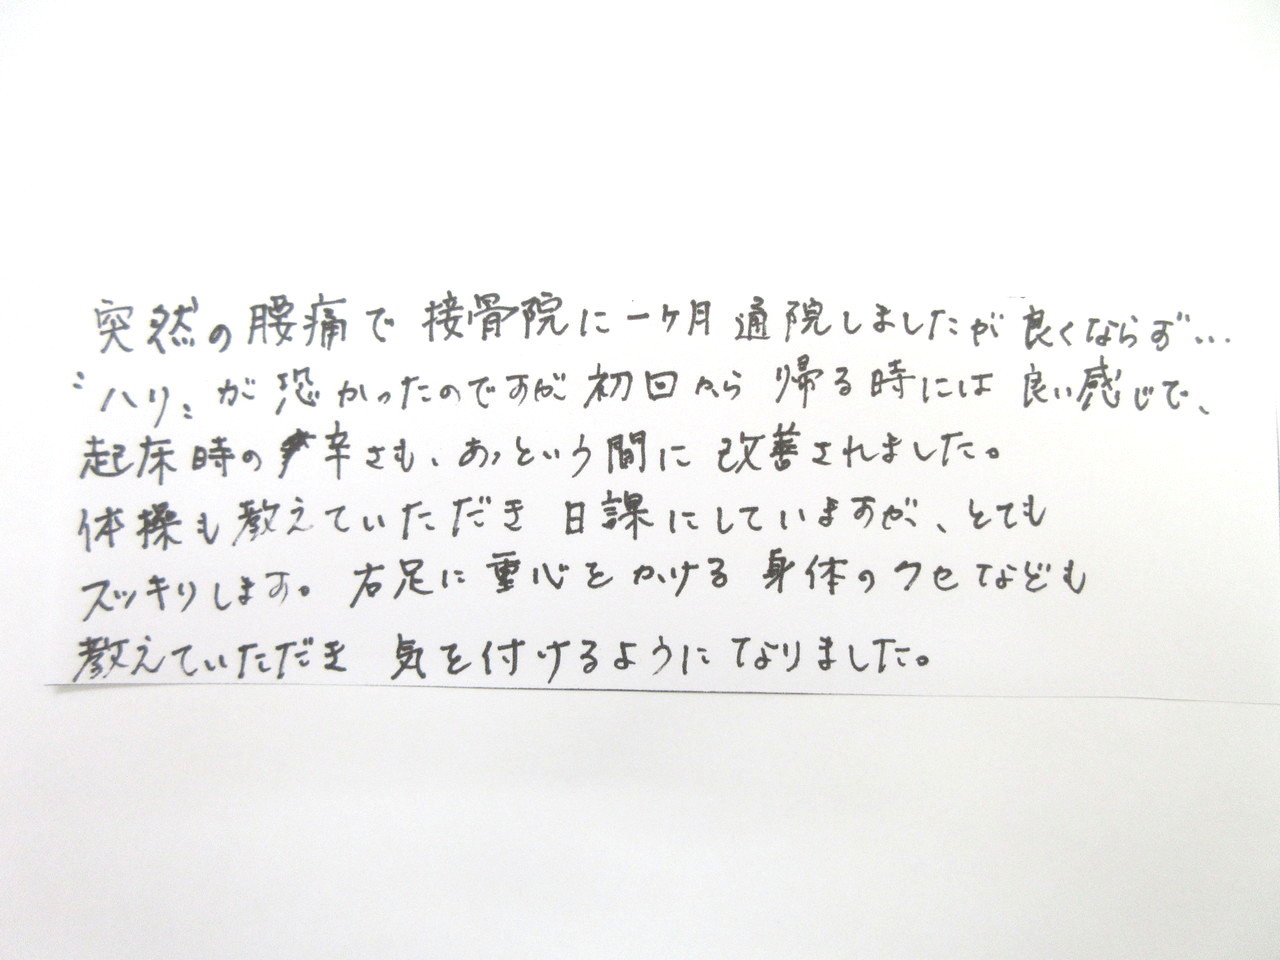 突然の腰痛で 接骨院に一ヶ月 通院しましたが 良くならず…
"ハリ"が恐かったのですが 初回から 帰る時には 良い感じで、
起床時の辛さも、あっという間に 改善されました。
体操も教えていただき 日課にしていますが、とても
スッキリします。右足に重心をかける 身体のクセなども
教えていただき 気を付けるようになりました。